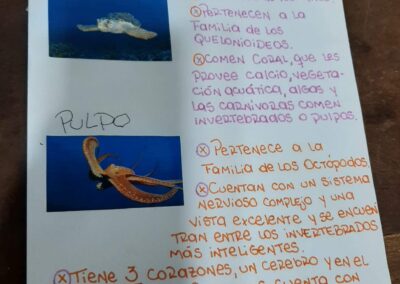 ⓧ PERTENECEN A LA
FAMILIA DE LOS
QUELONIOIDEOS.
ⓧ COMEN CORAL, QUE LES
PROVEE CALCIO, VEGETA-
CIÓN ACUÁTICA, ALGAS Y
LAS CARNIVORAS COMEN
INVERTEBRADOS O PULPOS.
PULPO
ⓧ PERTENECE A LA
FAMILIA DE LOS OCTÓPODOS
ⓧ CUENTAN CON UN SISTEMA
NERVIOSO COMPLEJO Y UNA
VISTA EXCELENTE Y SE ENCUEN
TRAN ENTRE LOS INVERTEBRADOS
MÁS INTELIGENTES.
ⓧ TIENE 3 CORAZONES, UN CEREBRO Y EN EL
CUENTA CON